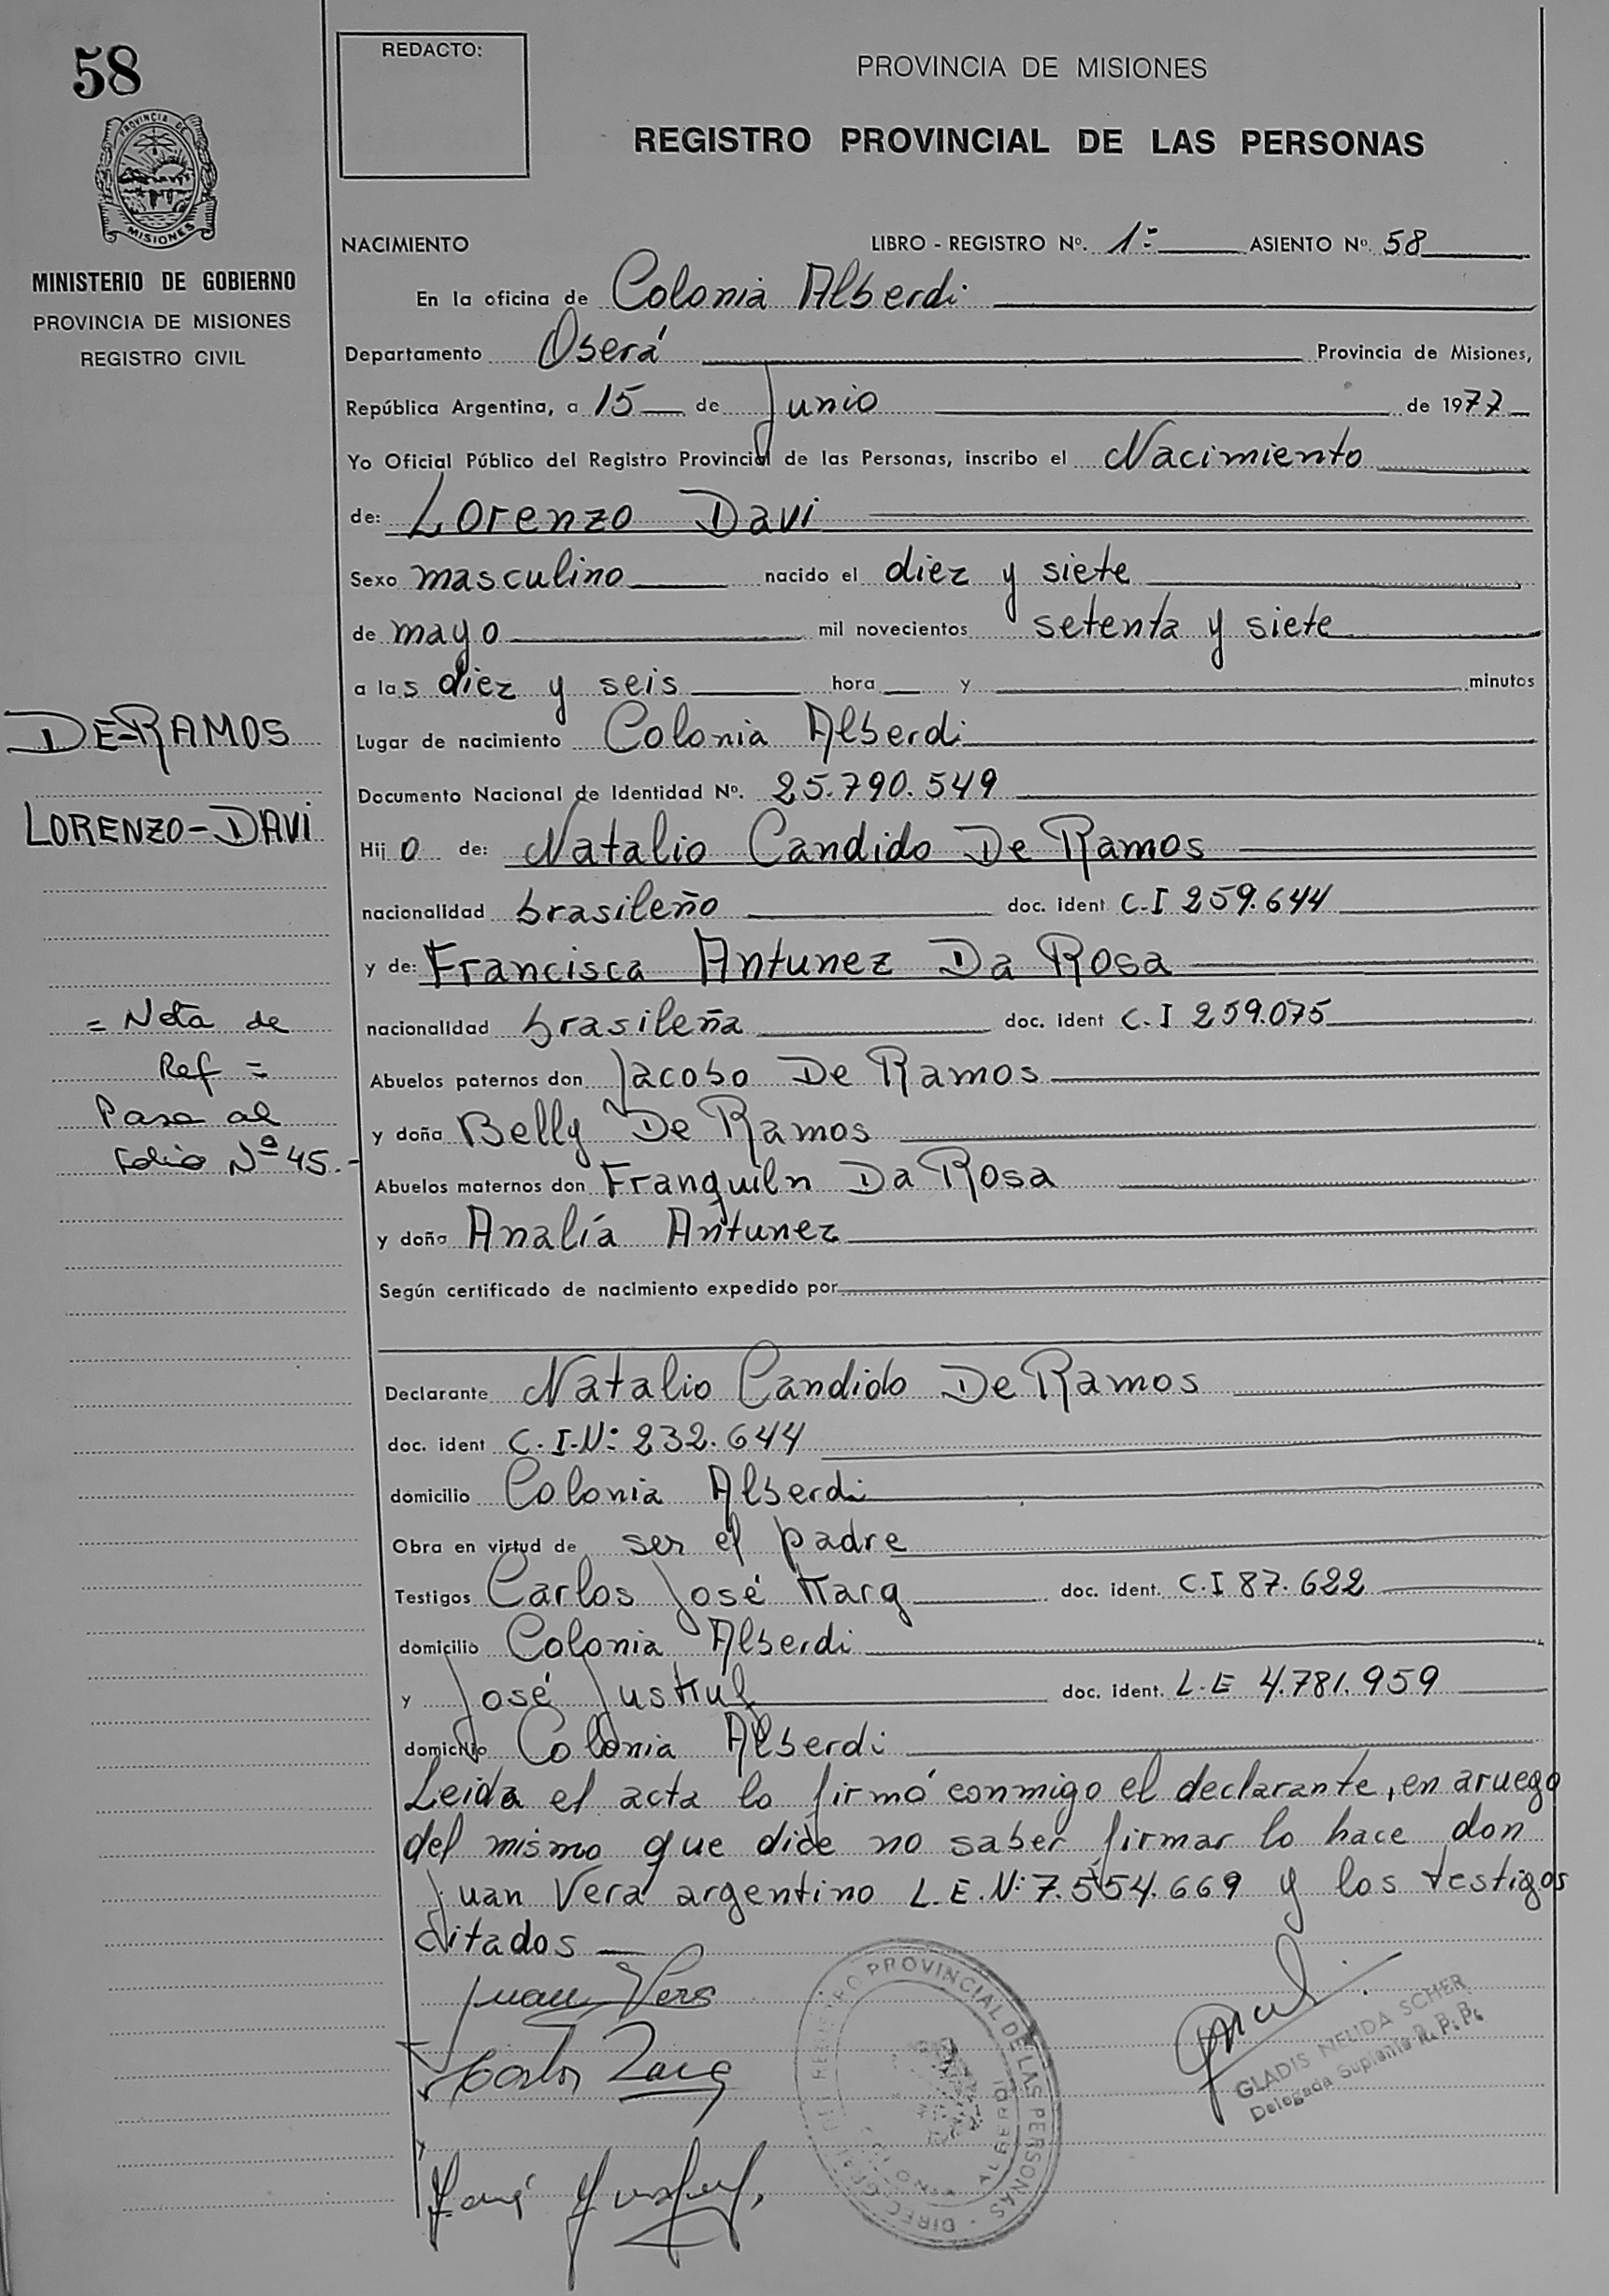 58
REDACTO:
PROVINCIA DE MISIONES
REGISTRO PROVINCIAL DE LAS PERSONAS
PROVINCIA DE
MISIONES
MINISTERIO DE GOBIERNO
PROVINCIA DE MISIONES
REGISTRO CIVIL
NACIMIENTO LIBRO - REGISTRO Nº. 1º ASIENTO Nº. 58
En la oficina de Colonia Alberdi
Departamento Oberá Provincia de Misiones,
República Argentina, a 15 de Junio de 1977
Yo Oficial Público del Registro Provincial de las Personas, inscribo el Nacimiento
de: Lorenzo Davi
Sexo masculino nacido el diez y siete
de mayo mil novecientos setenta y siete
a las diez y seis hora y minutos
DE-RAMOS
Lugar de nacimiento Colonia Alberdi
Documento Nacional de Identidad Nº. 25.790.549
LORENZO-DAVI
Hijo de: Natalio Candido De Ramos
nacionalidad brasileño doc. ident C.I 259.644
y de: Francisca Antunez Da Rosa
= Nota de
Ref =
Pasa al
Folio Nº 45.-
nacionalidad brasileña doc. ident C.I 259.075
Abuelos paternos don Jacobo De Ramos
y doña Belly De Ramos
Abuelos maternos don Franquiln Da Rosa
y doña Analía Antunez
Según certificado de nacimiento expedido por
Declarante Natalio Candido De Ramos
doc. ident C.I-N: 232.644
domicilio Colonia Alberdi
Obra en virtud de ser el padre
Testigos Carlos José Karg doc. ident. C.I 87.622
domicilio Colonia Alberdi
y José Juskuf doc. ident. L.E 4.781.959
domicilio Colonia Alberdi
Leida el acta lo firmó conmigo el declarante, en aruego
del mismo que dide no saber firmar lo hace don
Juan Vera argentino L.E.N: 7.554.669 y los testigos
citados
Juan Vera
GLADIS NELIDA SCHER
Delegada Suplente R.P.P.
REGISTRO PROVINCIAL DE LAS PERSONAS - DIREC. GRAL. DEL
ALBERDI